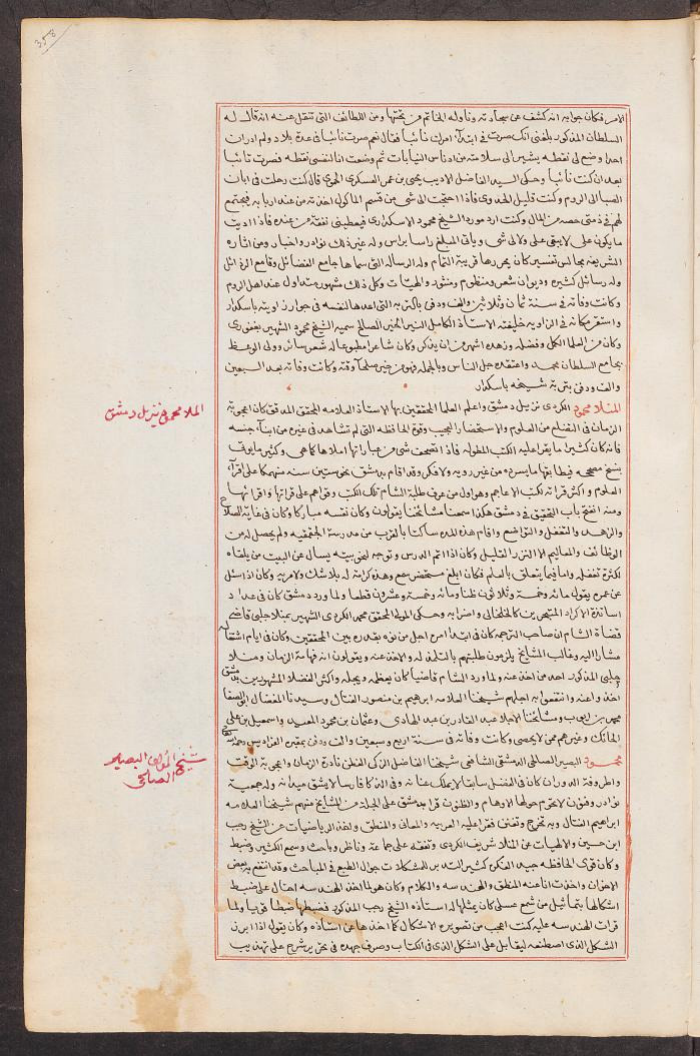 358
الامر فكان جوابه انه كشف عن سجادته وناوله الخاتم من تحتها ومن اللطائف التى تنقل عنه انه قال له
السلطان المذكور بلغنى انك صرت فى ابتداء امرك نائبا فقال نعم صرت نائبا فى عدة بلاد ولم ار ان
احدا وضع لى نقطه يشير الى سلامته من ادناس النيابات ثم وضعت انا لنفسى نقطه فصرت تائبا
بعد ان كنت نائبا وحكى السيد الفاضل الاديب يحيى بن عمر العسكرى الحموى قال كنت رحلت فى ابان
الصبا الى الروم وكنت قليل الجدوى فاذا احتجت الى شى من قسم الماكول اخذته من عند اربابه فيجتمع
لهم فى ذمتى حصه من المال وكنت ارد مورد الشيخ محمود الاسكدارى فيعطينى نفقة من عنده فاذا اديت
ما يكون على لا يبقى على ولا لى شى وياتى المبلغ راسا براس وله غير ذلك نوادر واخبار ومن اثاره
الشريفه مجالس تفسير كان يحررها قريبة التمام وله الرساله التى سماها جامع الفضائل وقامع الرذائل
وله رسائل كثيره وديوان شعر ومنظوم ومنثور والهيات وكل ذلك مشهور متداول عند اهل الروم
وكانت وفاته فى سنة ثمان وثلاثين والف ودفن بالتربه التى اعدها لنفسه فى جوار زاويته باسكدار
واستقر مكانه فى الزاويه خليفته الاستاذ الكامل النير الخير الصالح سميه الشيخ محمود الشهير بغفورى
وكان من العلما الكل وفضله وزهده اشهر من ان يذكر وكان شاعرا مطبوعا له شعر سائر وولى الوعظ
بجامع السلطان محمد واعتقده جل الناس وبالجمله فهو من خير صلحا وقته وكانت وفاته بعد السبعين
والف ودفن بتربة شيخه باسكدار
الملا محمود نزيل دمشق
المنلا محمود الكردى نزيل دمشق واعلم العلما المحققين بها الاستاذ العلامه المحقق المدقق كان اعجوبة
الزمان فى التضلع من العلوم والاستحضار العجيب وقوة الحافظه التى لم تشاهد فى غيره من ابناء جنسه
فانه كان كثيرا ما يقرا عليه الكتب المطوله فاذا تصحف شى من عباراتها املاها كما هى وكثيرا ما يوتى
بنسخ مصححه فيطابقها ما يسرده من غير رويه ولا فكر وقد اقام بدمشق نحو ستين سنه منهمكا على اقراء
العلوم واكثر قراته لكتب الاعاجم وهو اول من عرف طلبة الشام تلك الكتب وقواهم على قراتها واقرائها
ومنه انفتح باب التحقيق فى دمشق هكذا سمعنا مشائخنا يقولون وكان نفسه مباركا وكان فى غاية الصلاح
والزهد والتغفل والتواضع واقام هذه المده ساكنا بالقرب من مدرسة الجقمقيه ولم يحصل له من
الوظائف والمعاليم الا النزر القليل وكان اذا تم الدرس وتوجه لنحو بيته يسال عن البيت من يلقاه
لكثرة تغفله واما فيما يتعلق بالعلم فكان ابلغ مستحضر سمع وهذه كرامة له بلا شك ولا مريه وكان اذا سئل
عن عمره يقول مائه وخمسة وثلاثون ظنا ومائه وخمسة وعشرون قطعا ولما ورد دمشق كان فى عداد
اساتذة الاكراد المتبحرين كالخلخالى واضرابه وحكى المولى المحقق محمد الكردى الشهير بمنلا جلبى قاضى
قضاة الشام ان صاحب الترجمه كان فى ابتدا امره اجل من نوه بقدره بين المحققين وكان فى ايام اشتغاله
مشارا اليه وغالب المشايخ يلزمون طلبتهم بالتلمذ له والاخذ عنه ويقولون انه فهامة الزمان ومنلا
جلبى المذكور احد من اخذ عنه ولما ورد الشام قاضيا كان يعظمه ويجله واكثر الفضلا المشهورين بدمشق
اخذوا عنه وانتفعوا به اجلهم شيخنا العلامه ابرهيم بن منصور الفتال وسيدنا المفضال ابى الصفا
محمد بن ايوب ومشائخنا الاجلا عبد القادر بن عبد الهادى وعثمان بن محمود المعيد واسمعيل بن على
الحائك وغيرهم ممن لا يحصى وكانت وفاته فى سنة اربع وسبعين والف ودفن بمقبرة الفراديس رحمه الله تعالى
شيخ المؤلف البصير
الصالحى
محمود البصير الصالحى الدمشقى الشافعى شيخنا الفاضل الذكى الفطن نادرة الزمان واعجوبة الوقت
واطروفة الدوران كان فى الفضل سابقا لا يملك عنانه وفى الذكا فارسا لا يشق ميدانه وله جمعية
نوادر وفنون لا يحوم حولها الاوهام والظنون قرا بدمشق على الجلة من المشايخ منهم شيخنا العلامه
ابراهيم الفتال وبه تخرج وتفنن فقرا عليه العربيه والمعانى والمنطق واخذ الرياضيات عن الشيخ رجب
ابن حسين والالهيات عن المنلا شريف الكردى وتفقه على جماعه وناظر وباحث وسمع الكثير وضبط
وكان قوى الحافظه جيد الفكر كثير التدبر للمشكلات جوال الطبع فى المباحث وقد انتفع به بعض
الاخوان واخذت انا عنه المنطق والهندسه والكلام وكان هو لما اخذ الهندسه احتال على ضبط
اشكالها بتماثيل من شمع عسلى كان يمثلها له استاذه الشيخ رجب المذكور فضبطها ضبطا قويا ولما
قرات الهندسه عليه كنت اعجب من تصويره الاشكال كما اخذها عن استاذه وكان يقول اذا ابرز
الشكل الذى اصطنعه ليقابل على الشكل الذى فى الكتاب وصرف جهده فى تحرير شرح على تهذيب